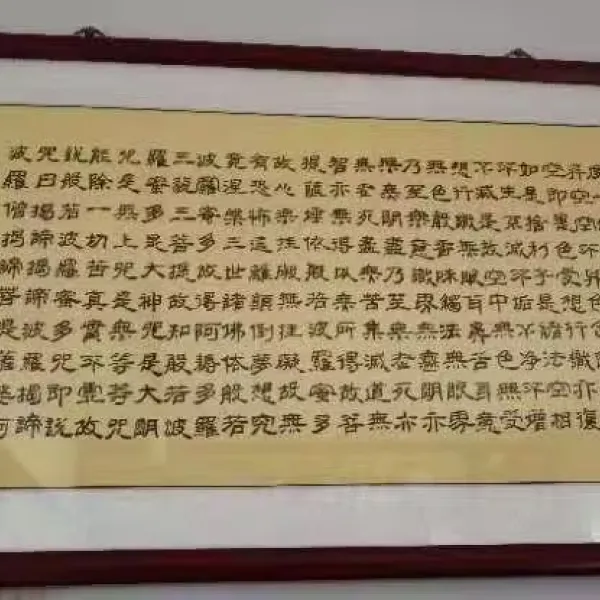 異空空不異色色即是空
空即是色受想行識亦復
如是捨利子是諸法空相
不生不滅不垢不淨不增
不減是故空中無色無受
想行識無眼耳鼻舌身意
無色聲香味觸法無眼界
乃至無意識界無無明亦
無無明盡乃至無老死亦
無老死盡無苦集滅道無
智亦無得以無所得故菩
提薩埵依般若波羅蜜多
故心無罣礙無罣礙故無
有恐怖遠離顛倒夢想究
竟涅槃三世諸佛依般若
波羅蜜多故得阿耨多羅
三藐三菩提故知般若波
羅蜜多是大神咒是大明
咒是無上咒是無等等咒
能除一切苦真實不虛故
説般若波羅蜜多咒即説
咒曰揭諦揭諦波羅揭諦
波羅僧揭諦菩提薩婆訶